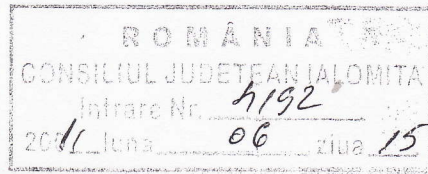 ROMÂNIA
CONSILIUL JUDEȚEAN IALOMIȚA
Intrare Nr. 4192
2011 luna 06 ziua 15